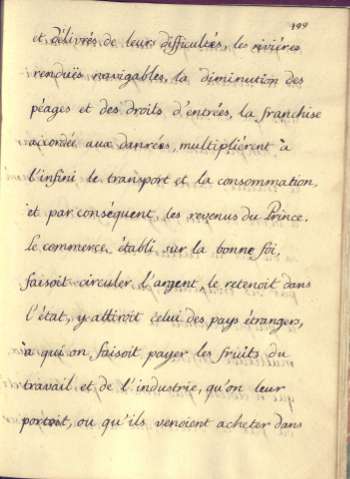 199
et délivrés de leurs difficultées, les rivières
renduës navigables, la diminution des
péages et des droits d'entrées, la franchise
accordée aux danrées, multipliérent à
l'infini le transport et la consommation,
et par conséquent, les revenus du Prince.
le commerce établi sur la bonne foi,
faisoit circuler l'argent, le retenoit dans
l'état, y attiroit celui des pays étrangers,
à qui on faisoit payer les fruits du
travail et de l'industrie, qu'on leur
portoit, ou qu'ils venoient acheter dans